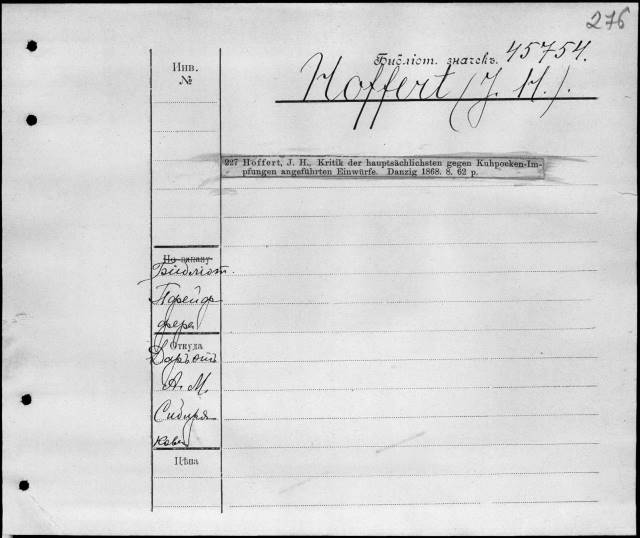 276
Инв.
№
Библіот. значекъ. 45754.
Hoffert (J. H.).
227 Hoffert, J. H., Kritik der hauptsächlichsten gegen Kuhpocken-Im-
pfungen angeführten Einwürfe. Danzig 1868. 8. 62 p.
По заказу
Библіот.
Пфейф
фера
Откуда
Даръ отъ
А. М.
Сибиря
кова
Цѣна